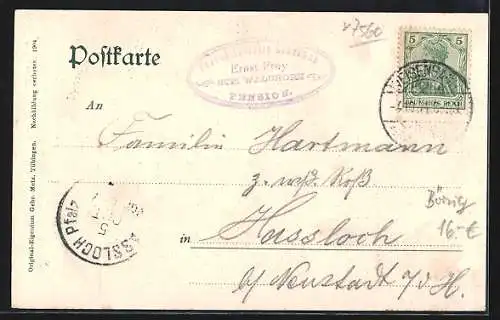 v7560
Postkarte
Ernst Frey
ZUM WALDHORN
PENSION.
5 5
DEUTSCHES REICH
An
Familie Hartmann
z. weiß. Roß
in Hassloch
b/ Neustadt a/d. H.
HASSLOCH Pfalz
5
16.-€
Original-Eigentum Gebr. Metz, Tübingen. Nachbildung verboten. 1904